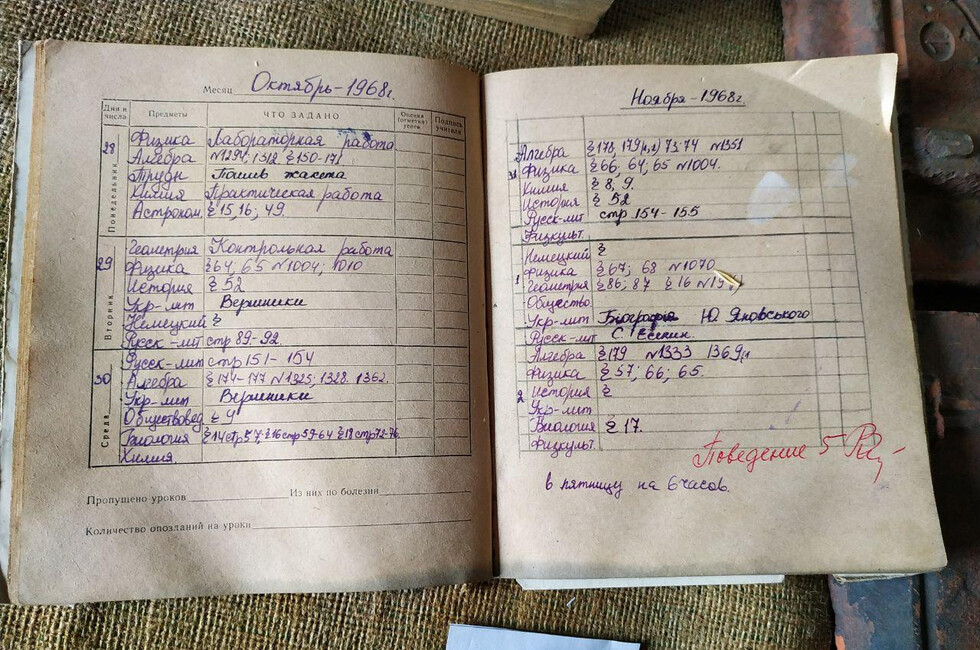 Месяц Октябрь-1968г.
Дни и числа Предметы ЧТО ЗАДАНО Оценка (отметка) успев. Подпись учителя
28 Понедельник
Физика Лабораторная работа
Алгебра №1294; 1312 § 150-171
Трудн Пошив жакета
Химия Практическая работа
Астроном. § 15, 16; 49.
29 Вторник
Геометрия Контрольная работа
Физика § 64; 65 №1004; 1010
История § 52
Укр-лит Вершники
Немецкий §
Русск-лит стр 89-92.
30 Среда
Русск-лит стр 151-154
Алгебра § 174-177 №1325; 1328. 1362.
Укр-лит Вершники
Обществовед § 4
Биология § 14 стр 57; § 16 стр 59-64 § 19 стр 72-76.
Химия.
Пропущено уроков Из них по болезни
Количество опозданий на уроки
Ноября-1968г
31
Алгебра § 178, 179 73; 74 №1351
Физика § 66; 64, 65 №1004.
Химия § 8, 9.
История § 52
Русск-лит стр 154-155
Физкульт.
1
Немецкий §
Физика § 67; 68 №1070
Геометрия § 86; 87 § 16
Общество
Укр-лит Біографія Ю. Яновського
Русск-лит С. Есенин.
2
Алгебра § 179 №1333 1369
Физика § 57; 66; 65.
История §
Укр-лит
Биология § 17.
Физкульт.
Поведение 5
в пятницу на 6 часов.